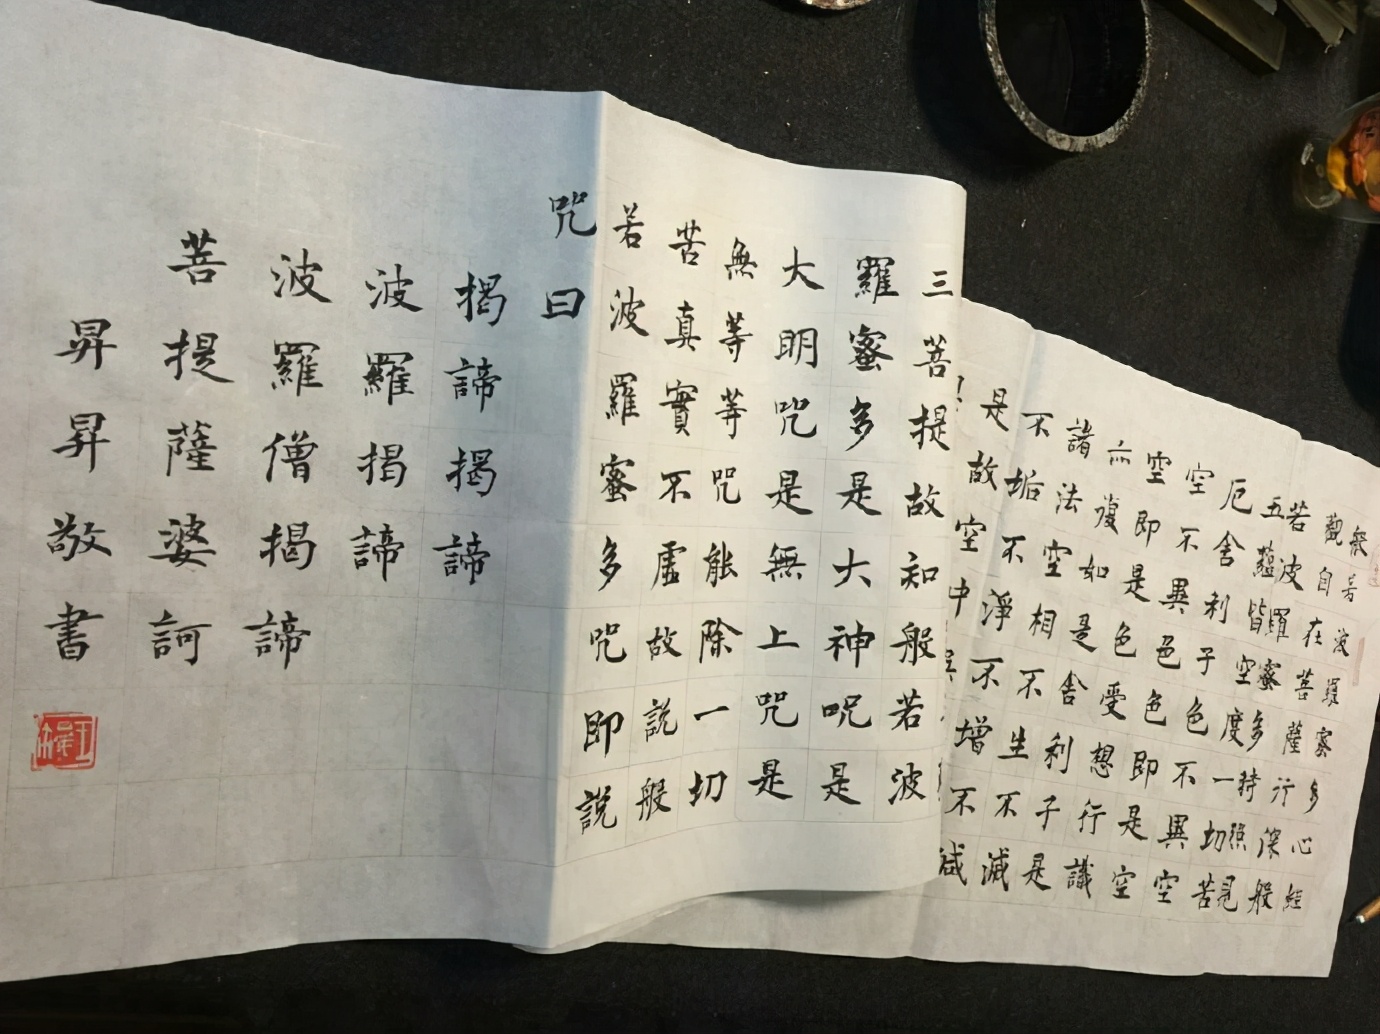 般若波羅蜜多心經
觀自在菩薩行深般
若波羅蜜多時照見
五蘊皆空度一切苦
厄舍利子色不異空
空不異色色即是空
空即是色受想行識
亦復如是舍利子是
諸法空相不生不滅
不垢不淨不增不減
是故空中
三菩提故知般若波
羅蜜多是大神呪是
大明咒是無上咒是
無等等咒能除一切
苦真實不虛故說般
若波羅蜜多咒即說
咒曰
揭諦揭諦
波羅揭諦
波羅僧揭諦
菩提薩婆訶
昇昇敬書